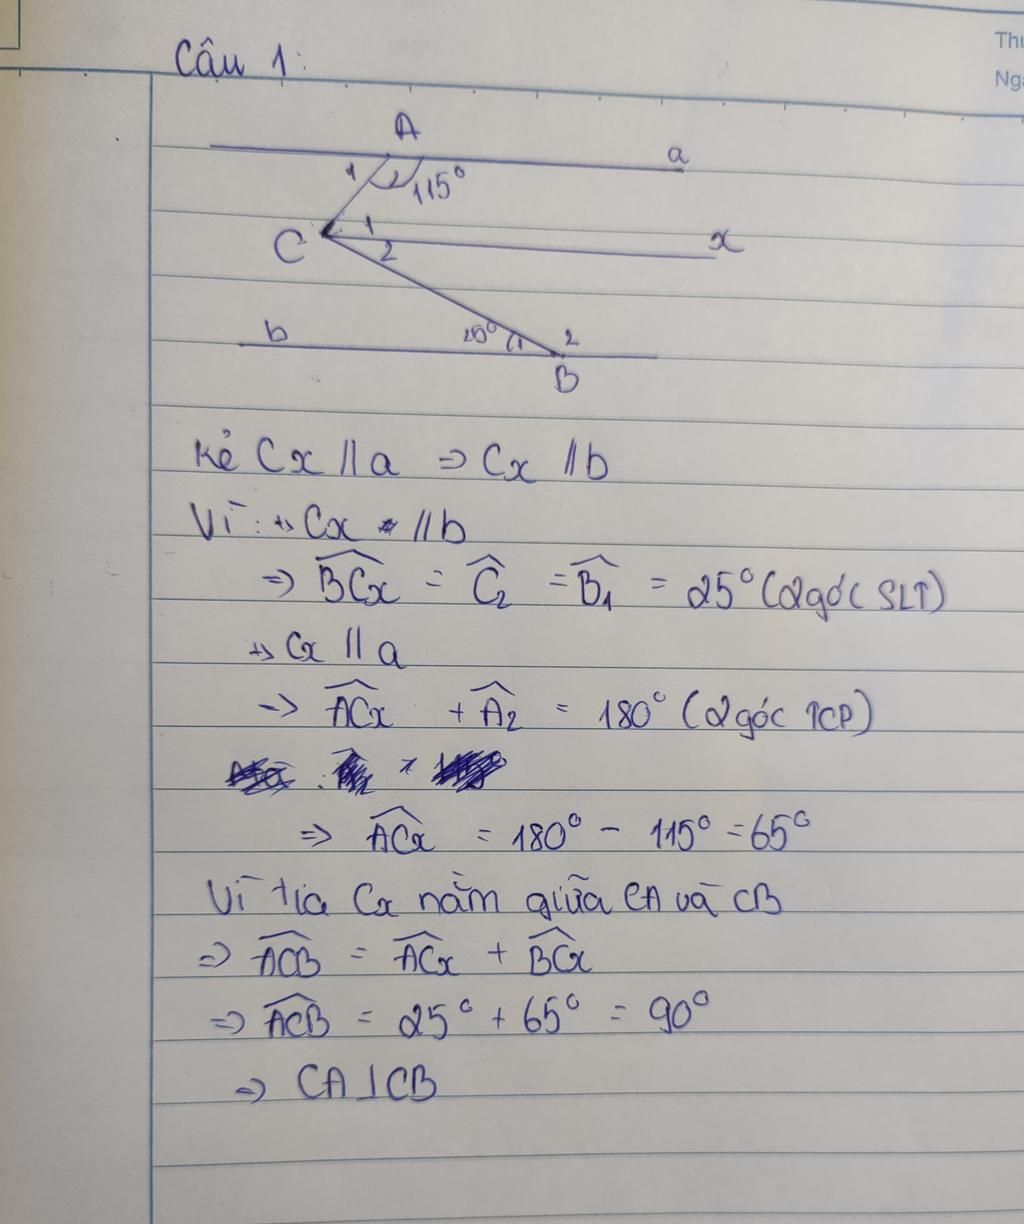 Thu
Ngà
Câu 1:
A
a
1
2
115°
C
1
2
x
b
25°
1
2
B
Kẻ Cx // a => Cx // b
Vì: +, Cx // b
=> BCx = C2 = B1 = 25° (2 góc SLT)
+, Cx // a
=> ACx + A2 = 180° (2 góc TCP)
=> ACx = 180° - 115° = 65°
Vì tia Cx nằm giữa CA và CB
=> ACB = ACx + BCx
=> ACB = 25° + 65° = 90°
=> CA ⊥ CB